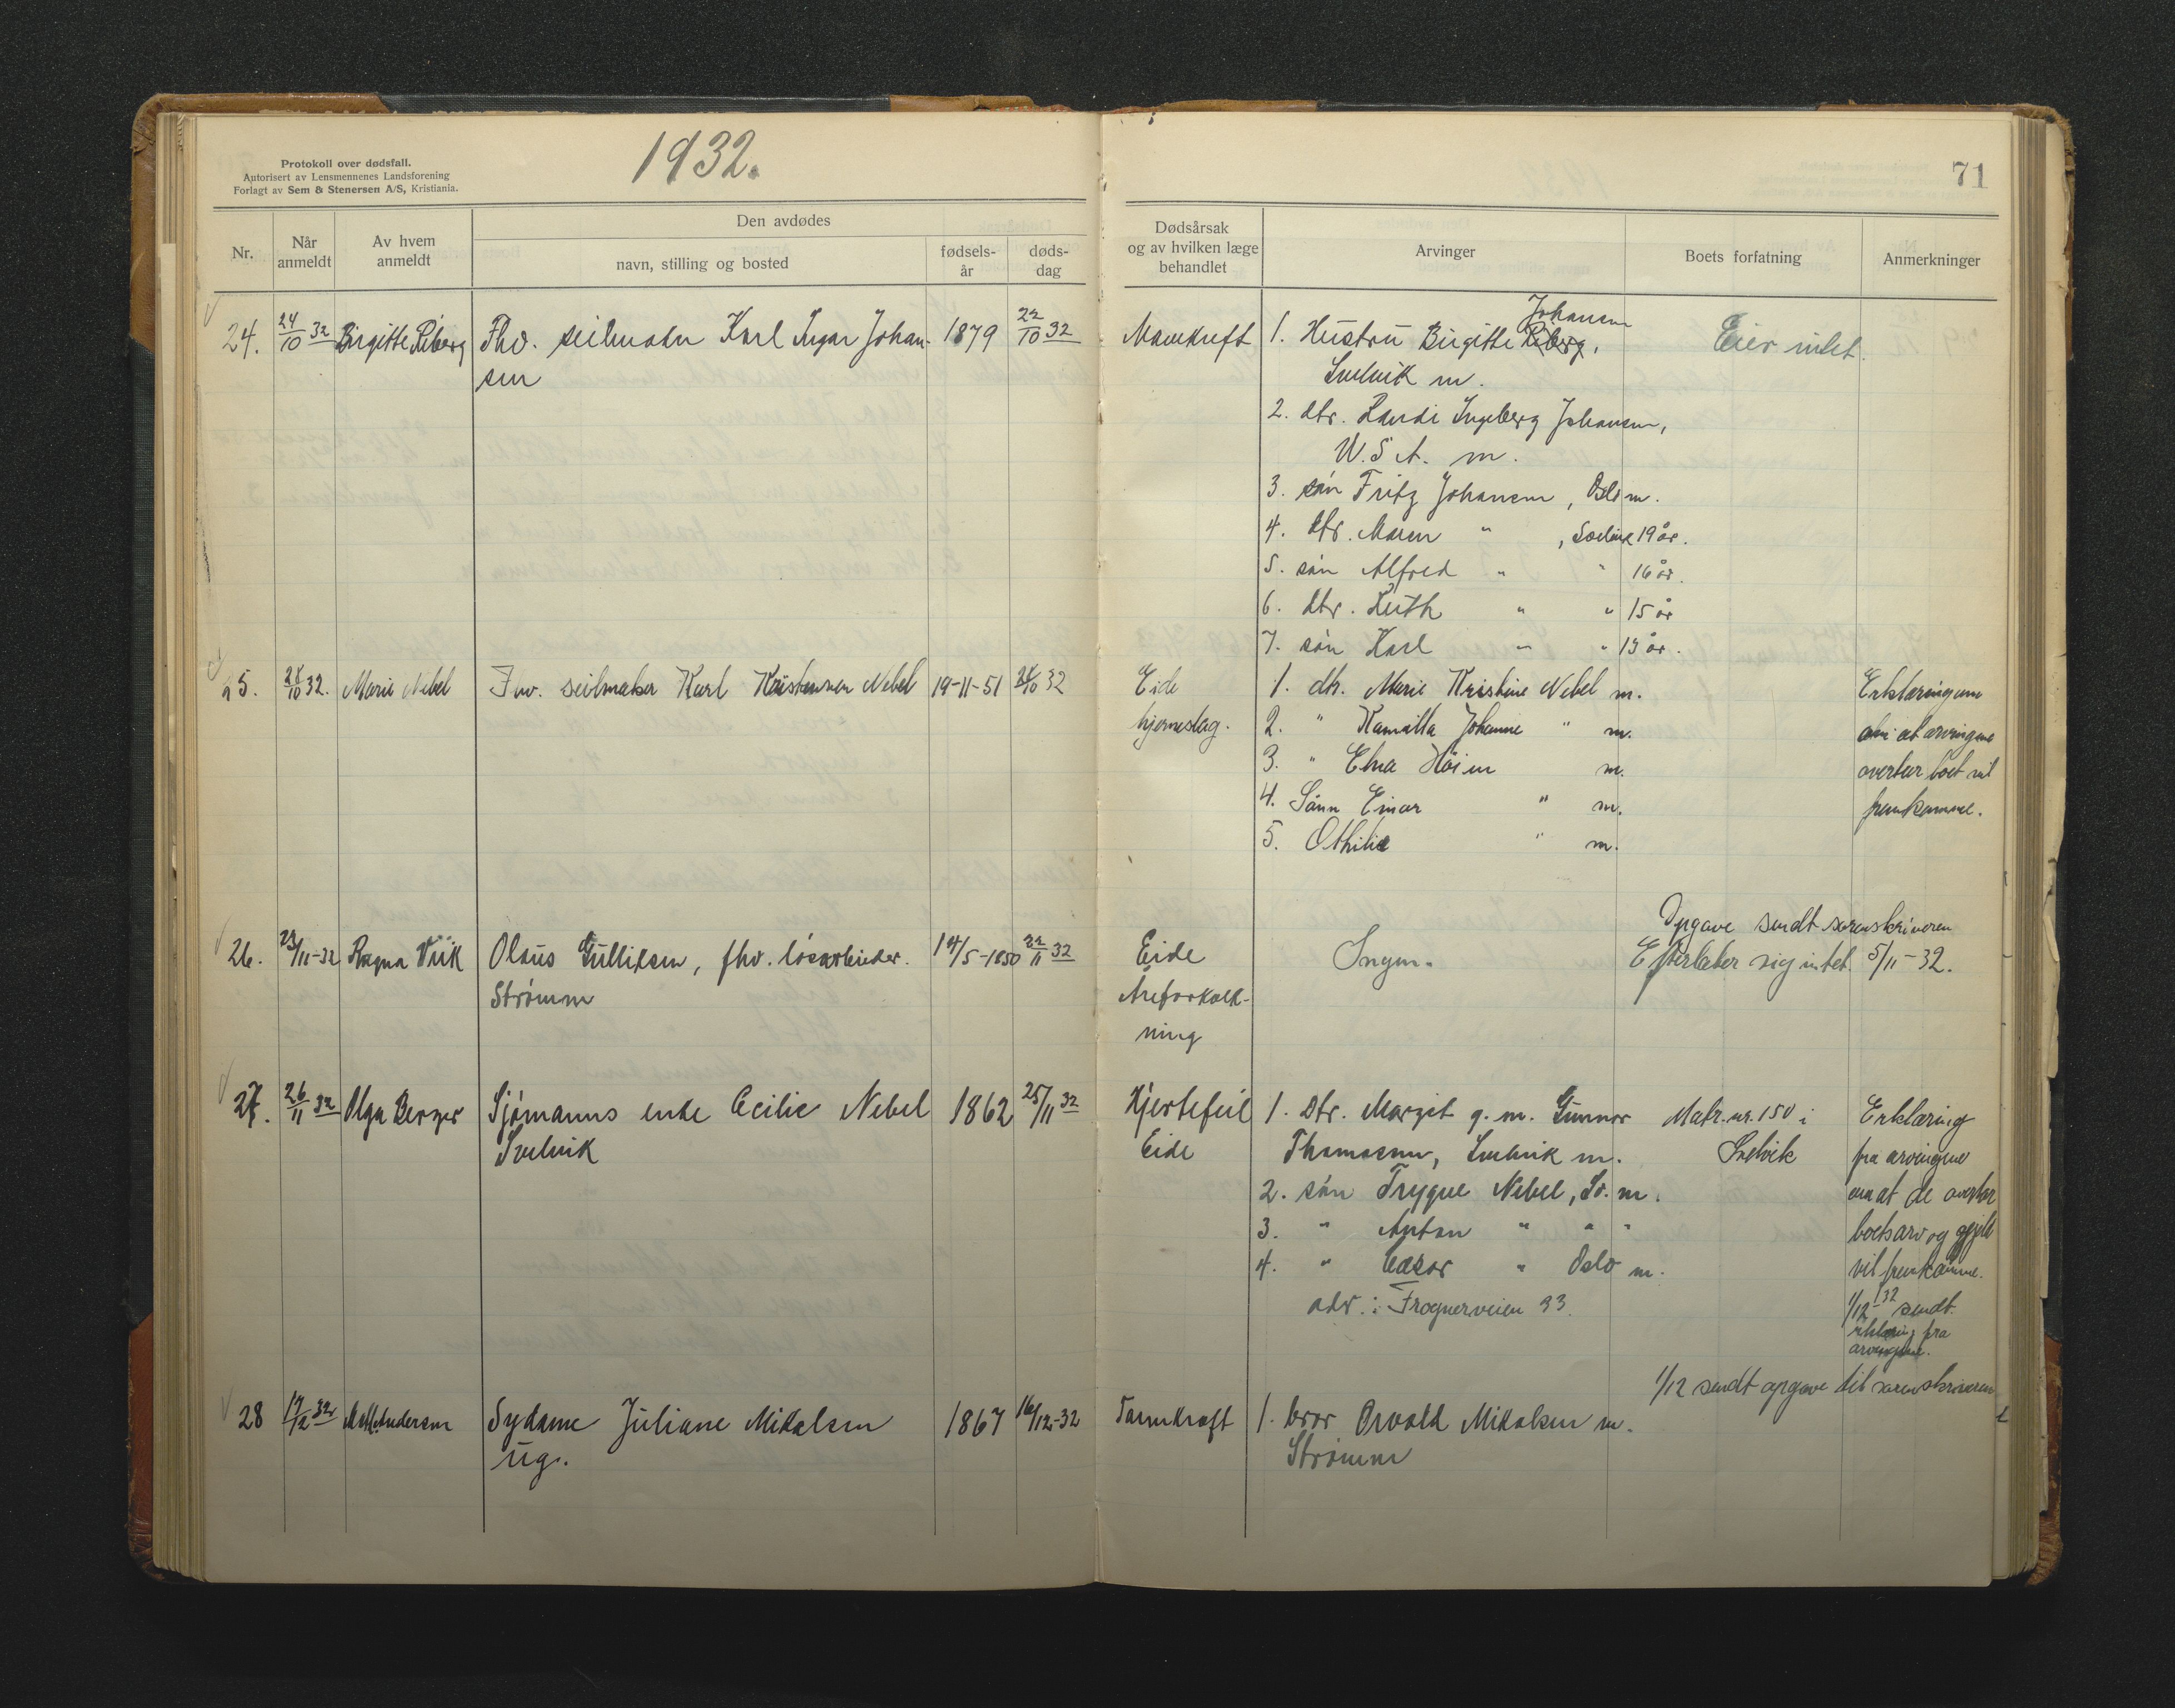 Protokoll over dødsfall.
Autorisert av Lensmennenes Landsforening
Forlagt av Sem & Stenersen A/S, Kristiania.
1932.
71
Nr.
Når anmeldt
Av hvem anmeldt
Den avdødes
navn, stilling og bosted
fødsels-år
døds-dag
Dødsårsak
og av hvilken læge
behandlet
Arvinger
Boets forfatning
Anmerkninger
24. 24/10 32 Birgitte Riberg Fhv. seilmaker Karl Ingar Johan- 1879 22/10 32
sen
Mavekreft
Johansen
1. Hustru Birgitte Riberg,
Svelvik m.
Eier intet.
2. dtr. Randi Ingeberg Johansen,
U.S.A. m.
3. søn Fritz Johansen, Oslo m.
4. dtr. Maren " , Svelvik 19 år.
5. søn Alfred " " 16 år.
6. dtr. Ruth " " 15 år
7. søn Karl " " 13 år.
25. 28/10 32. Marie Nebel Fhv. seilmaker Karl Kristensen Nebel 19-11-51 32
Eide
hjerneslag.
1. dtr. Marie Kristine Nebel m.
2. " Kamilla Johanne " m.
3. " Elna Höien m.
4. Sönn Einar " m.
5. Othilie " m.
Erklæring
om at arvingene
overtar boet vil
fremkomme.
Opgave sendt sorenskriveren
5/11-32.
26. 23/11-32 Ragna Viik Olaus Gulliksen, fhv. løsarbeider. 14/5-1850 22/11 32
Strømm
Eide
Åreforkalk-
ning
Ingen.
Efterlater sig intet.
27. 26/11 32 Olga Berger Sjømanns enke Cecilie Nebel 1862 25/11 32
Svelvik
Hjertefeil
Eide
1. Dtr. Margit g.m. Gunnar
Thomassen, Svelvik m.
2. søn Trygve Nebel, Sv. m.
3. " Anton " " "
4. " Cæsar " Oslo m.
adr.: Frognerveien 33.
Matr. nr. 150 i
Svelvik
Erklæring
fra arvingene
om at de overtar
boets arv og gjeld
vil fremkomme.
1/12-32 sendt
erklæring fra
arvingene.
1/12 sendt opgave til sorenskriveren
28 17/12 32 M. Andersen Sydame Juliane Mikalsen 1867 16/12-32
ug.
Tarmkreft
1. bror Osvald Mikalsen m.
Strømm